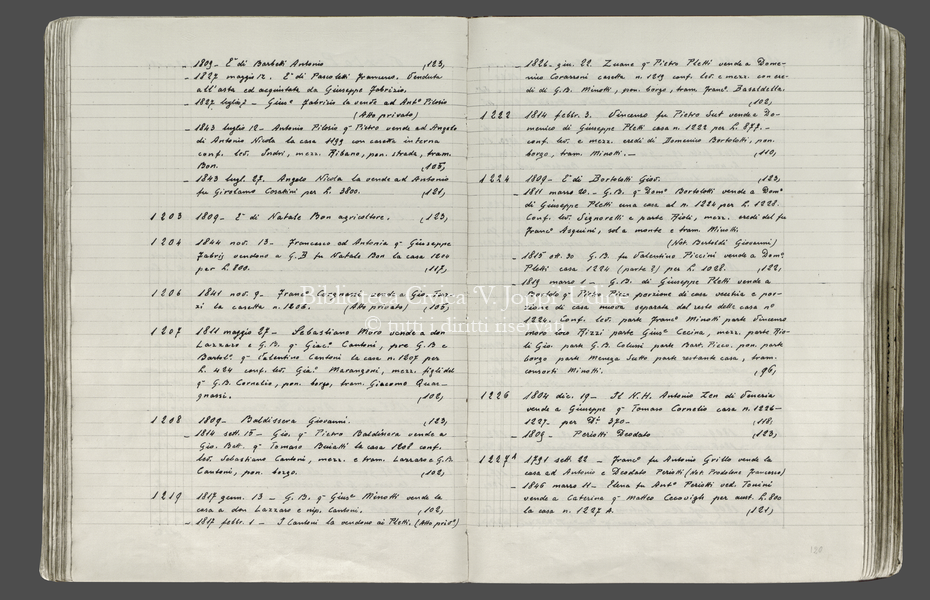 - 1809 - È di Barbetti Antonio (123)
- 1827 maggio 12. È di Pascoletti Francesco. Venduta
all'asta ed acquistata da Giuseppe Fabrizio.
- 1827 luglio 2 - Gius. Fabrizio la vende ad Ant. Pilosio
(Atto privato)
- 1843 luglio 12 - Antonio Pilosio q. Pietro vende ad Angelo
di Antonio Nicola la casa 1199 con casetta interna
conf. lev. Indri, mezz. Ribano, pon. strada, tram.
Bon. (105)
- 1843 lugl. 27. Angelo Nicola la vende ad Antonio
fu Girolamo Cosatini per L. 3800. (121)
1203 1809 - È di Natale Bon agricoltore. (123)
1204 1844 nov. 13 - Francesco ed Antonia q. Giuseppe
Fabris vendono a G.B fu Natale Bon la casa 1204
per L. 800. (117)
1206 1841 nov. 9 - Franc.
zi la casetta n. 1206. (Atto privato) (105)
1207 1811 maggio 27 - Sebastiano Moro vende a don
Lazzaro e G.B. q. Giac. Cantoni, pre G.B e
Bartol. q. Valentino Cantoni la casa n. 1207 per
L. 424 conf. lev. Gia. Marangoni, mezz. figli del
q. G.B. Cornelio, pon. borgo, tram. Giacomo Quar-
gnassi. (102)
1208 1809 - Baldissera Giovanni. (123)
- 1814 sett. 15 - Gio. q. Pietro Baldissera vende a
Gio. Batt. q. Tomaso Buiatti la casa 1208 conf.
lev. Sebastiano Cantoni, mezz. e tram. Lazzaro e G.B.
Cantoni, pon. borgo. (102)
1219 1817 genn. 13 - G.B. q. Gius. Minotti vende la
casa a don Lazzaro e nip. Cantoni. (102)
- 1817 febbr. 1 - I Cantoni la vendono ai Pletti. (Atto priv.)
- 1826 - giu. 22. Zuane q. Pietro Pletti vende a Dome-
nico Corazzoni casetta n. 1219 conf. lev. e mezz. con ere-
di di G.B. Minotti, pon. borgo, tram. Franc. Basaldella.
(102)
1222 1814 febbr. 3. Vincenzo fu Pietro Sut vende a Do-
menico di Giuseppe Pletti casa n. 1222 per L. 877. -
conf. lev. e mezz. eredi di Domenico Bortolotti, pon.
borgo, tram. Minotti. - (110)
1224 1809 - È di Bortolotti Giov. (123)
- 1811 marzo 20. - G.B. q. Dom. Bortolotti vende a Dom.
di Giuseppe Pletti una casa al n. 1224 per L. 1228.
Conf. lev. Signorelli e parte Rioli, mezz. eredi del fu
Franc. Asquini, sol a monte e tram. Minotti
(Not. Bertoldi Giovanni)
- 1815 ott. 30 G.B. fu Valentino Piccini vende a Dom.
Pletti casa 1224 (parte?) per L. 1028. (122)
1819 marzo 1 - G.B. di Giuseppe Pletti vende a
Bortolo q. Pietro porzione di casa vecchia e por-
zione di casa nuova separata del resto delle casa n.
1224. Conf. lev. parte Franc. Minotti parte Vincenzo
Moro ora Rizzi parte Gius. Cecina, mezz. parte Rio-
li Gio. parte G.B. Colussi parte Bart. Picco. pon. parte
borgo parte Menega Sutto parte restante casa, tram.
consorti Minotti. (96)
1226 1804 dic. 19 - Il N.H. Antonio Zen di Venezia
vende a Giuseppe q. Tomaso Cornelio casa n. 1226 -
1227 per D.ti 370 - (118)
- 1809 - Periotti Deodato (123)
1227A 1791 sett. 22 - Franc. fu Antonio Grillo vende la
casa ad Antonio e Deodato Periotti (Not. Prodolone Francesco)
- 1846 marzo 11 - Elena fu Ant. Periotti ved. Tonini
vende a Caterina q. Matteo Cecovigh per aust. L. 800
la casa n. 1227 A. (121)
128
Biblioteca Civica V. Joppi Udine
© tutti i diritti riservati